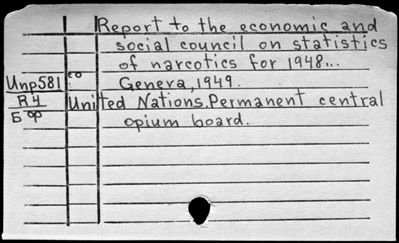 Report to the economic and
social council on statistics
of narcotics for 1948...
Unp581 co Geneva, 1949.
R4 United Nations. Permanent central
5op opium board.